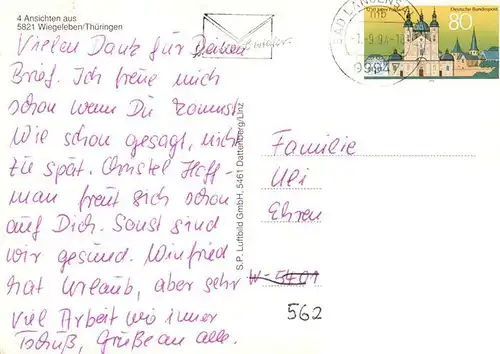 4 Ansichten aus
5821 Wiegeleben/Thüringen
Vielen Dank für Deinen
Brief. Ich freue mich
schon wenn Du kommst.
Wie schon gesagt, nicht
zu spät. Christel Hoff-
man freut sich schon
auf Dich. Sonst sind
wir gesund. Winfried
hat Urlaub, aber sehr
viel Arbeit wie immer
Tschüß, Grüße an alle.
S.P. Luftbild GmbH, 5461 Dattenberg/Linz
BAD LANGENS
-1.-9.94-18
9994
Deutsche Bundespost
80
Familie
Uli
Ehren
W-5401
562